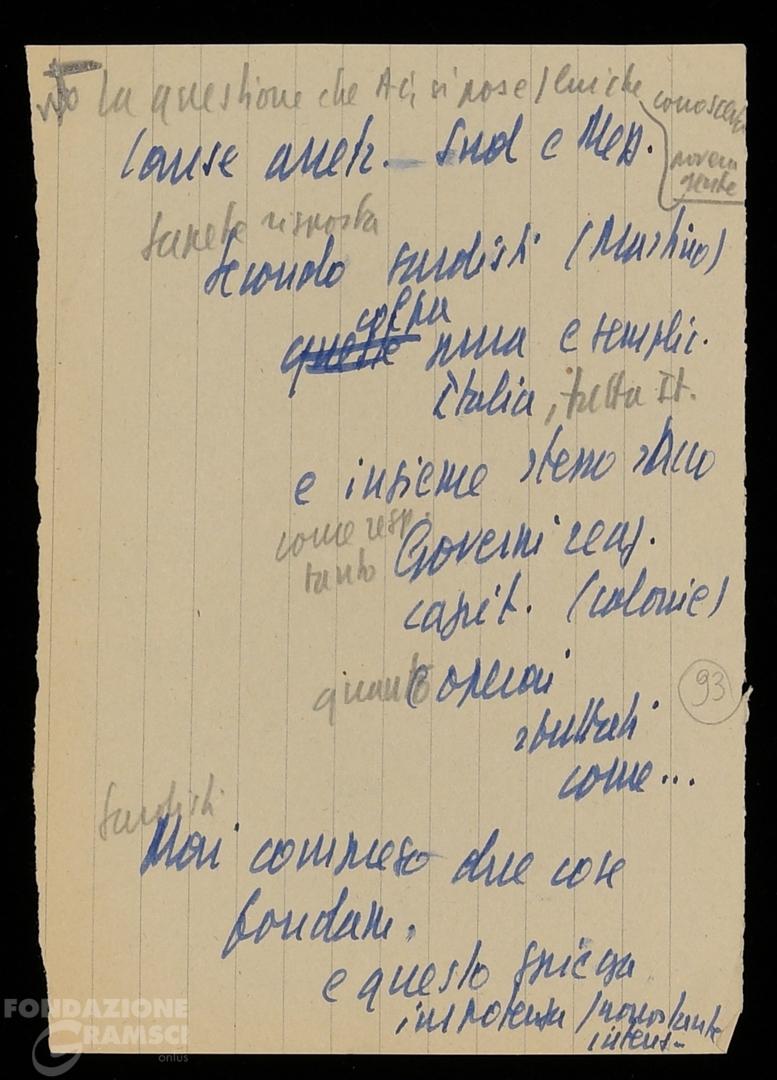 La questione che A.G. si pose / lui che conosceva
povera
gente
cause arretr. – Sud e Mezz.
sapete risposta
Secondo sardisti (Mastino)
colpa
queste pura e semplic.
Italia, tutta It.
e insieme stesso sacco
come resp.
tanto Governi reaz.
capit. (colonie)
quanto e operai
sfruttati
come...
Sardisti
Mai compreso due cose
fondam.
e questo spiega
impotenza / nonostante
intens–
93
FONDAZIONE
GRAMSCI
onlus